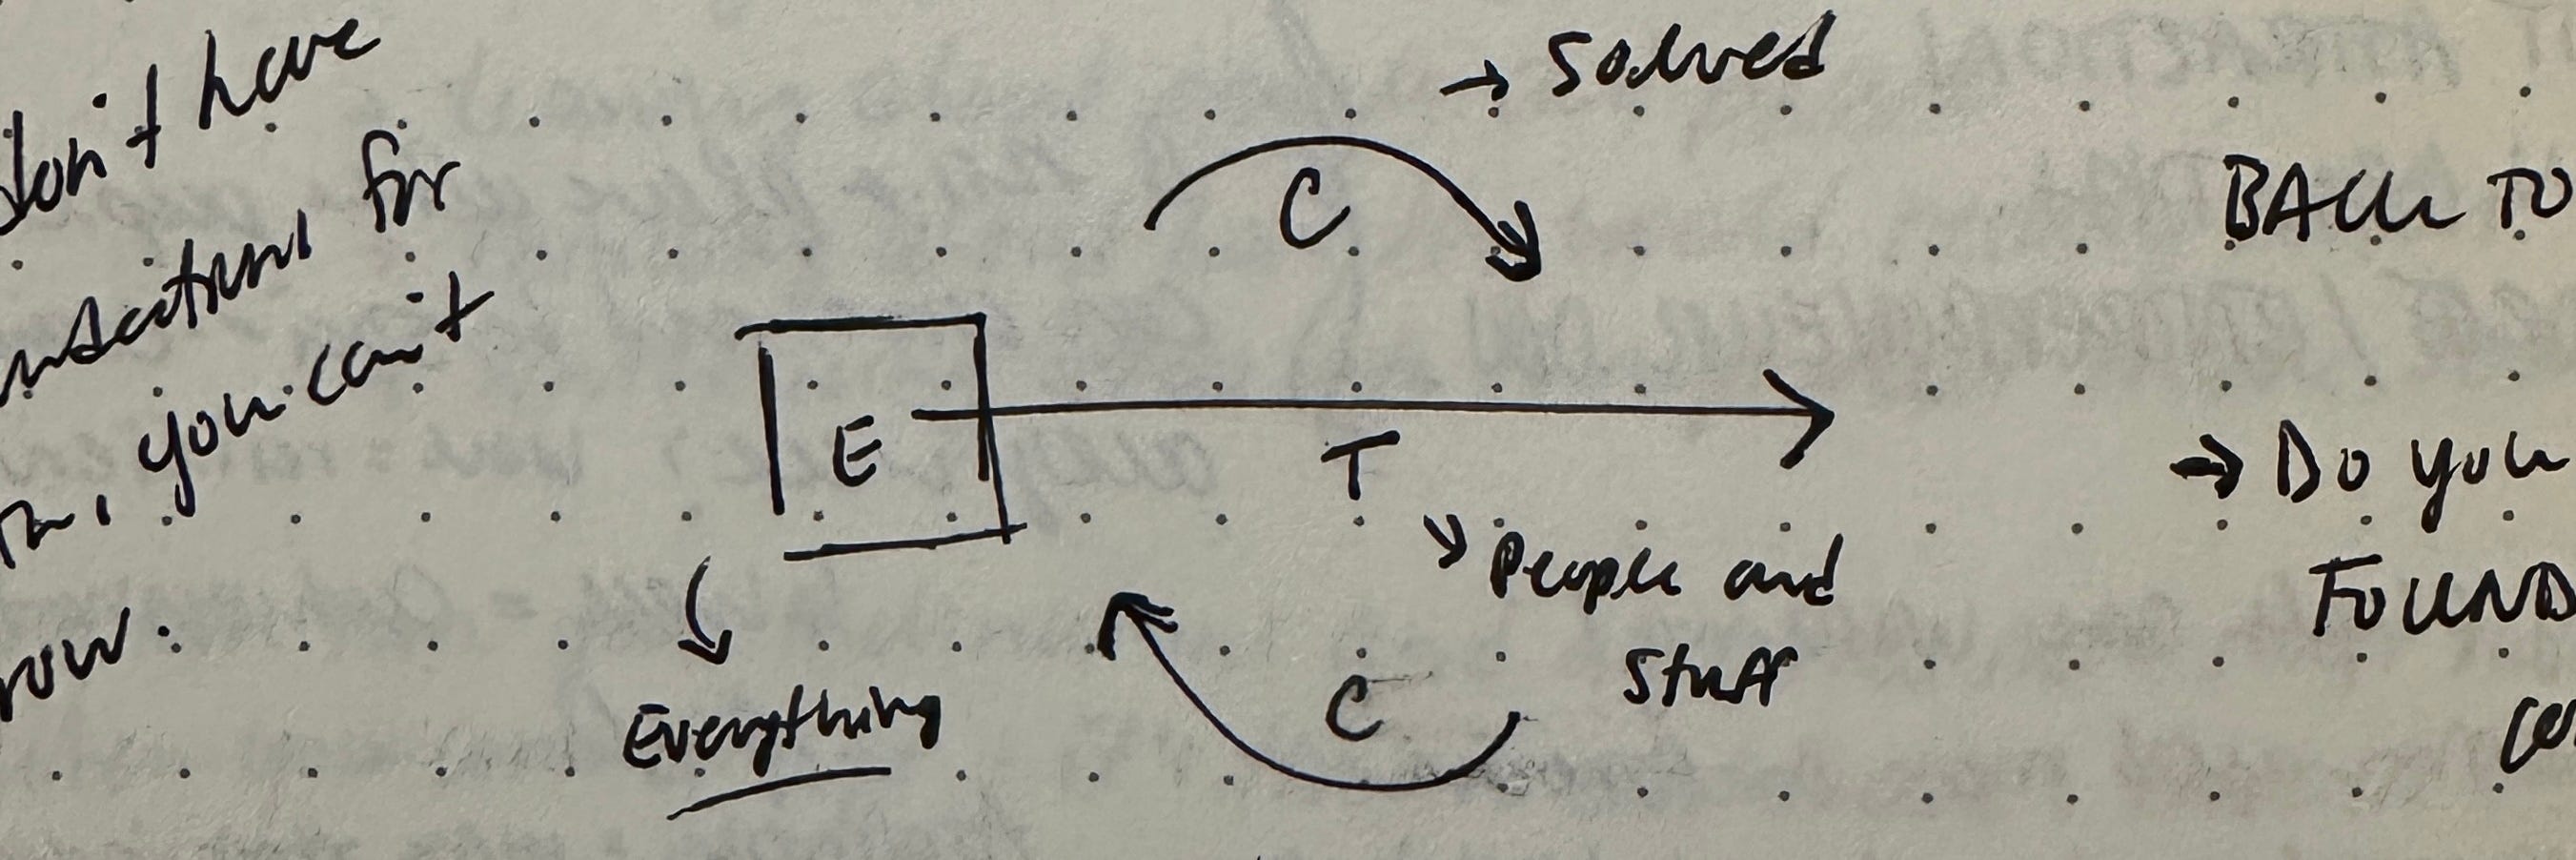 don't have
for
you can't
→ Solved
C
E
T
→ People and
Stuff
C
Everything
BACK TO
→ Do you
FOUND